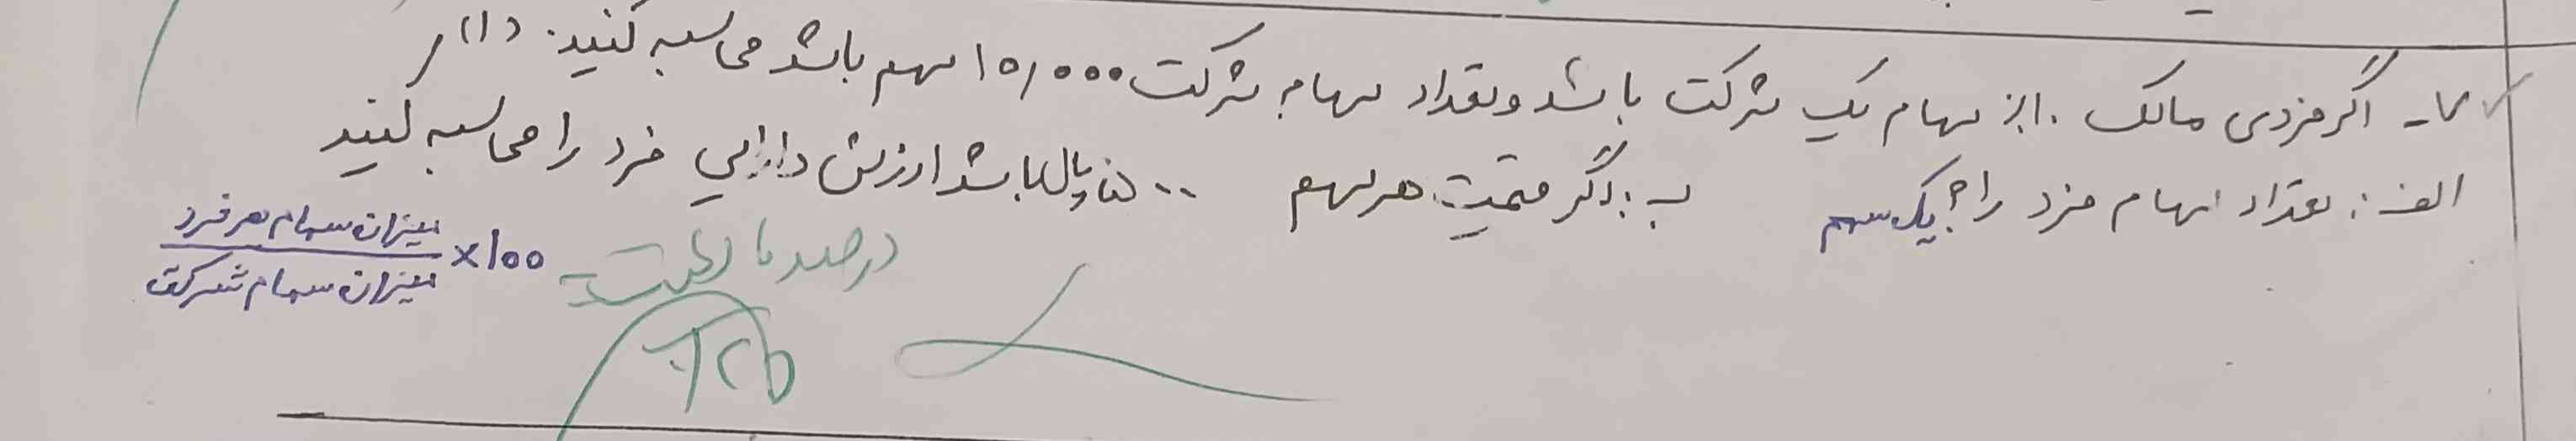 ۷- اگر فردی مالک ۱۰٪ از سهام یک شرکت باشد و تعداد سهام شرکت ۱۰,۰۰۰ سهم باشد محاسبه کنید. (۱)
الف: تعداد سهام فرد را؟ یک سهم ب: اگر قیمت هر سهم ۵۰۰ ریال باشد ارزش دارایی فرد را محاسبه کنید
درصد مالکیت = میزان سهام هر فرد / میزان سهام شرکت ×100